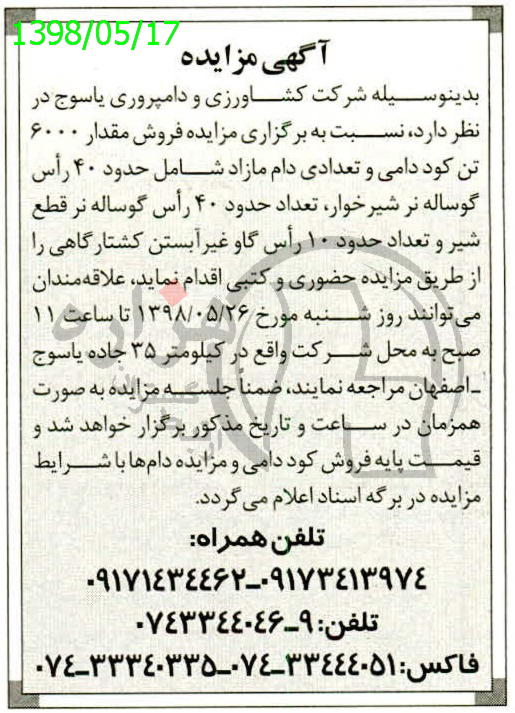 1398/05/17
آگهی مزایده
بدینوسیله شرکت کشاورزی و دامپروری یاسوج در
نظر دارد، نسبت به برگزاری مزایده فروش مقدار ۶۰۰۰
تن کود دامی و تعدادی دام مازاد شامل حدود ۴۰ رأس
گوساله نر شیرخوار، تعداد حدود ۴۰ رأس گوساله نر قطع
شیر و تعداد حدود ۱۰ رأس گاو غیرآبستن کشتارگاهی را
از طریق مزایده حضوری و کتبی اقدام نماید، علاقه‌مندان
می‌توانند روز شنبه مورخ ۱۳۹۸/۰۵/۲۶ تا ساعت ۱۱
صبح به محل شرکت واقع در کیلومتر ۳۵ جاده یاسوج
ـ اصفهان مراجعه نمایند، ضمناً جلسه مزایده به صورت
همزمان در ساعت و تاریخ مذکور برگزار خواهد شد و
قیمت پایه فروش کود دامی و مزایده دام‌ها با شرایط
مزایده در برگه اسناد اعلام می گردد.
تلفن همراه:
۰۹۱۷۳۴۱۳۹۷۴ـ۰۹۱۷۱۴۳۴۴۶۲
تلفن: ۹ـ۰۷۴۳۳۴۴۰۴۶
فاکس: ۳۳۴۴۴۰۵۱ـ۰۷۴ـ۳۳۳۴۰۳۳۵ـ۰۷۴
هزاره